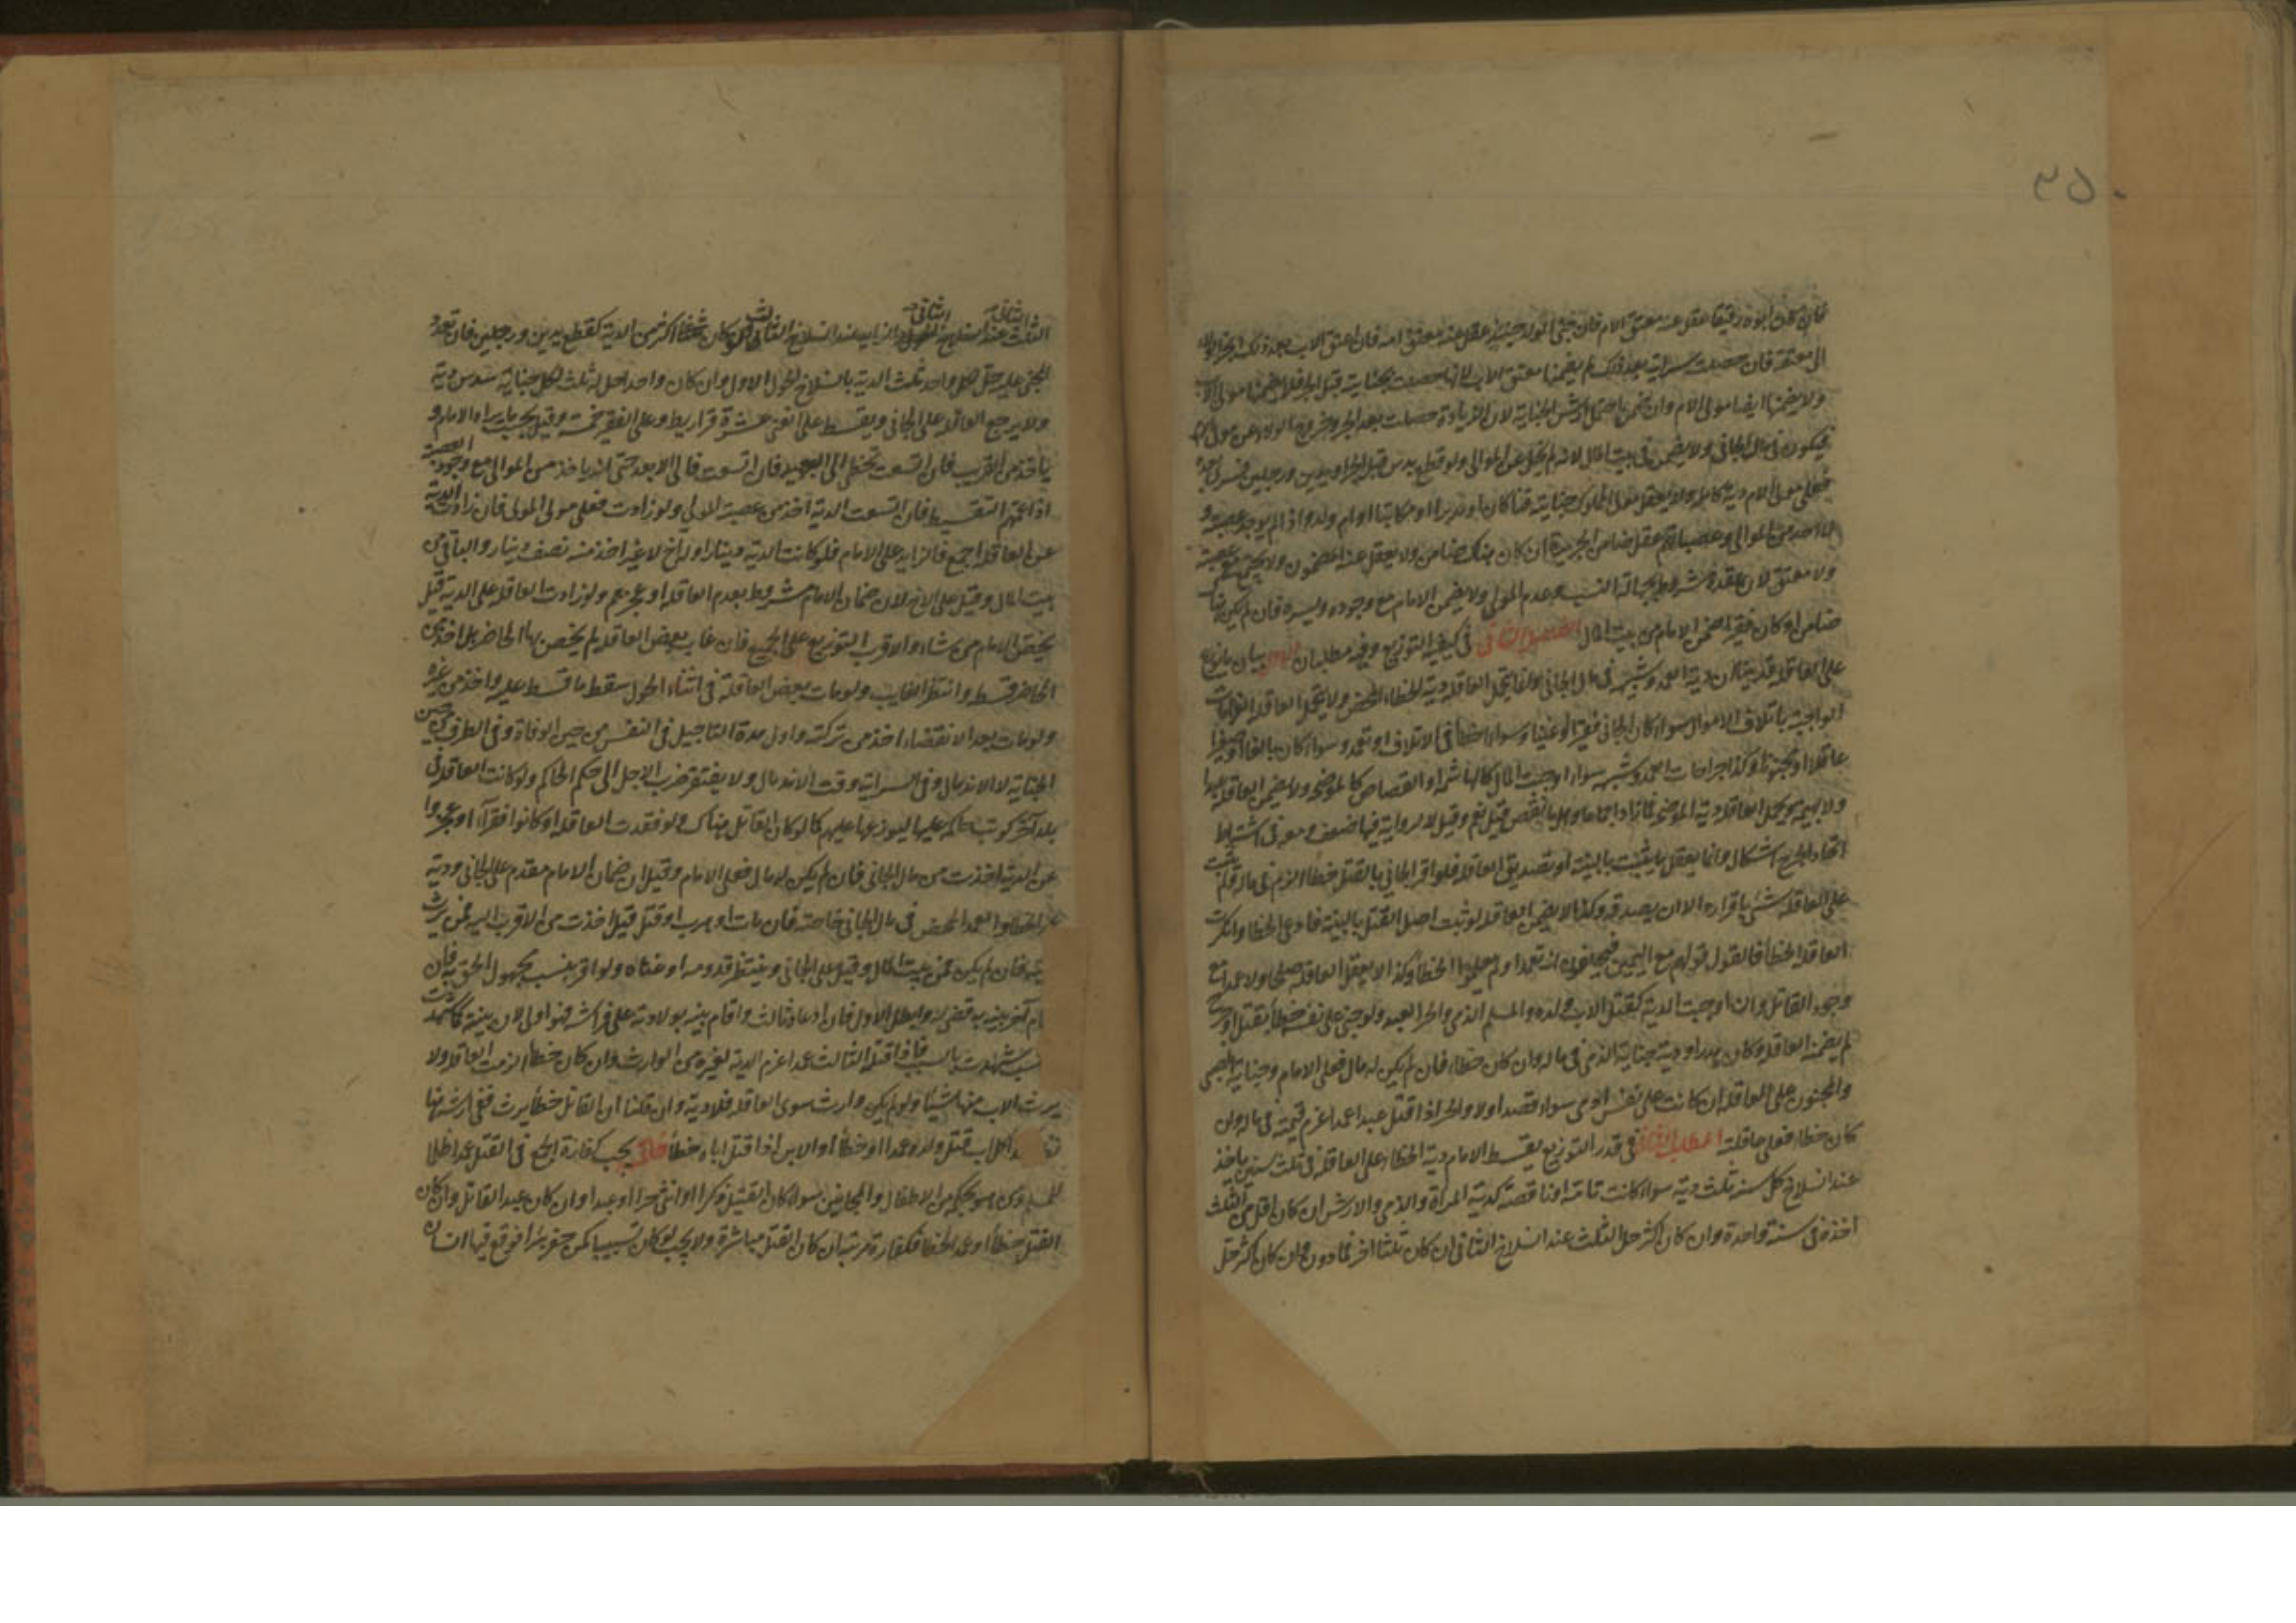 ٣٥٠
فإن كان ابوه رقيقا عقل عنه معتق الام فان جنى الولد حينئذ عقل عنه معتق امه فان اعتق الاب بعد ذلك انجر الولاء
الى معتقه فان حصلت سراية بعد ذلك لم يضمنها معتق الاب لانها حصلت بجناية قبل الجر فلا يضمنها مولى الاب
ولا يضمنها ايضا مولى الام وان ضمن ارش الجناية لان الزيادة حصلت بعد الجر وخروج الولاء عن مولى الام
فيكون في مال الجاني ولا يضمن في بيت المال لانه لم يخل عن الموالي ولو قطع يدين قبل الجر ويدين ورجلين
فعلى مولى الام دية كاملة ولا يعقل مولى المملوك جنايته قنا كان او مدبرا او مكاتبا او ام ولد واذا لم يوجد عصبة و
لا احد من الموالي وعصباتهم عقل ضامن الجريرة ان كان هناك ضامن ولا يعقل عنه المضمون ولا يجتمع مع عصبة
ولا معتق لان عقده مشروط بجهالة النسب وعدم المولى ولا يضمن الامام مع وجوده ويسره فان لم يكن هناك
ضامن او كان فقيرا ضمن الامام من بيت المال الفصل الثاني في كيفية التوزيع وفيه مطلبان الاول بيان ما يوزع
على العاقلة قد بينا ان دية العمد وشبهه في مال الجاني وانما تحمل العاقلة دية الخطاء المحض ولا يتحمل العاقلة الغرامات
الواجبة باتلاف الاموال سواء كان الجاني فقيرا او غنيا وسواء اخطأ في الاتلاف او تعمد وسواء كان بالغا او صغيرا
عاقلا او مجنونا وكذا جراحات العمد وشبهه سواء اوجبت المال كالهاشمة او القصاص كالموضحة ولا يضمن العاقلة عبدا
ولا بهيمة ويحمل العاقلة دية الموضحة فما زاد اجماعا وهل ما نقص قيل نعم وقيل لا لرواية فيها ضعف ومعه في اشتراط
اتحاد الجرح اشكال وانما يعقل ما يثبت بالبينة او تصديق العاقلة فلو اقر الجاني بالقتل خطاء الزم في ماله ولم يثبت
على العاقلة شئ باقراره الا ان يصدقه وكذا لا يضمن العاقلة لو ثبت اصل القتل بالبينة فادعى الخطا وانكرت
العاقلة الخطأ فالقول قولهم مع اليمين فيحلفون انه تعمد او لم يعلموا الخطأ وكذا لا يعقل العاقلة صلحا ولا عمدا مع
وجود القاتل وان اوجبت الدية كقتل الاب ولده والمسلم الذمي والحر العبد ولو جنى على نفسه خطأ بقتل او جرح
لم يضمنه العاقلة وكان هدرا ودية جناية الذمي في ماله وان كان خطاء فان لم يكن له مال فعلى الامام وجناية الصبي
والمجنون على العاقلة ان كانت على نفس ادمي سواء قصدا او لا والحر اذا قتل عبدا عمدا غرم قيمته في ماله وان
كان خطاء فعلى عاقلته المطلب الثاني في قدر التوزيع يقسط الامام دية الخطاء على العاقلة في ثلث سنين ياخذ
عند انسلاخ كل سنة ثلث دية سواء كانت تامة او ناقصة كدية المرأة والذمي والارش ان كان اقل من الثلث
اخذ في سنة واحدة وان كان اكثر حل الثلث عند انسلاخ الثاني ان كان ثلثا اخر فما دون وان كان اكثر حل
الثلث عند انسلاخ الثانية والزايد عند انسلاخ الثالث ولو كان شخصا اكثر من الدية كقطع يدين ورجلين فان تعدد
المجني عليه حل لكل واحد ثلث الدية بانسلاخ الحول الاول وان كان واحدا حل له ثلث لكل جناية سدس دية
ولا يرجع العاقلة على الجاني ويقسط على الغني عشرة قراريط وعلى الفقير خمسة وقيل بحسب ما يراه الامام و
ياخذ من القريب فان اتسعت تخطى الى البعيد فان اتسعت فالى الابعد حتى انه ياخذ من الموالي مع وجود العصبة
اذا عمهم التقسيط فان اتسعت الدية اخذ من عصبة المولى ولو زادت فعلى مولى المولى فان زادت الدية
عن العاقلة اجمع فالزايد على الامام فلو كانت الدية دينارا وله اخ لا غير اخذ منه نصف دينار والباقي من
بيت المال وقيل على الاخ لان ضمان الامام مشروط بعدم العاقلة او عجزهم ولو زادت العاقلة على الدية قيل
يختص الامام من شاء والاقرب التوزيع على الجميع فان غاب بعض العاقلة لم يخص بها الحاضر بل اخذ من
الحاضر قسطه وانتظر الغايب ولو مات بعض العاقلة في اثناء الحول سقط ما قسط عليه واخذ من غيره
ولو مات بعد الانقضاء اخذ من تركته واول مدة التاجيل في النفس من حين الوفاة وفي الطرف من حين
الجناية لا الاندمال وفي السراية وقت الاندمال ولا يفتقر ضرب الاجل الى حكم الحاكم ولو كانت العاقلة في
بلد آخر كوتب حاكمه عليها ليوزعها عليهم كما لو كان القاتل هناك ولو فقدت العاقلة او كانوا فقراء او عجزوا
عن الدية اخذت من مال الجاني فان لم يكن له مال فعلى الامام وقيل ان ضمان الامام مقدم على الجاني ودية
الخطا والعمد المحض في مال الجاني خاصة فان مات او هرب او قتل قيل اخذت من الاقرب اليه ممن يرث
ديته فان لم يكن فمن بيت المال وقيل على الجاني وينتظر قدومه او غناه ولو اقر بنسب مجهول الحق به فان
ام آخر بينة به قضي له وابطل الاول فان ادعاه ثالث واقام بينة بولادته على فراشه فهو اولى لان بينته كما شهدت
شهدت بالسبب فاذا قتله الثالث عمدا غرم الدية لغيره من الوارث وان كان خطأ الزمت العاقلة ولا
يرث الاب منها شيئا ولو لم يكن وارث سوى العاقلة فلا دية وان قلنا ان القاتل خطأ يرث ففي ارثه هنا
الاب قتل ولده عمدا او خطأ او الابن اذا قتل اباه خطأ خاتمة يجب كفارة الجمع في القتل عمدا ظلما
للمسلم ومن هو بحكمه من الاطفال والمجانين سواء كان القتيل ذكرا او انثى حرا او عبدا وان كان عبد القاتل وان كان
القتل خطأ او عمد الخطا فكفارة مرتبة ان كان القتل مباشرة ولا يجب لو كان تسبيبا كمن حفر بئرا فوقع فيها انسان